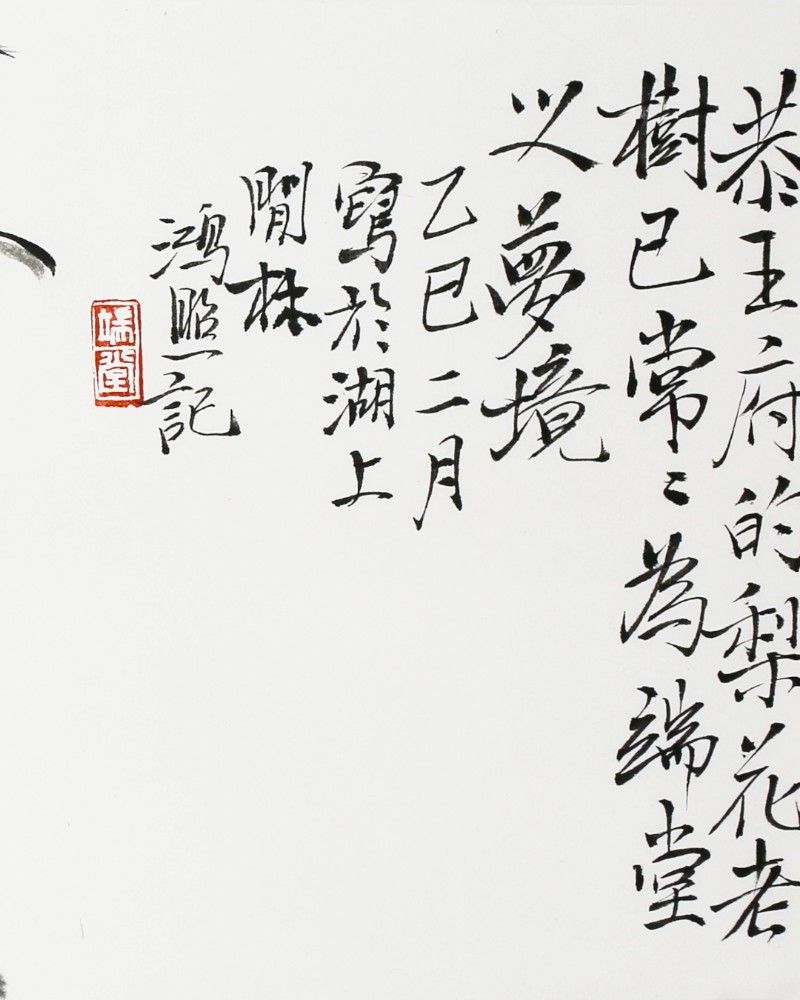 恭王府的梨花老
樹已常〻為端堂
夢境
乙巳二月
寫於湖上
閒林
鴻照一記
端堂